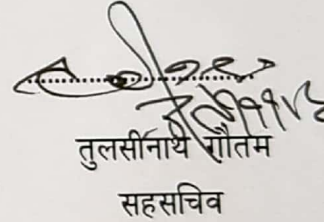 तुलसीनाथ गौतम
सहसचिव